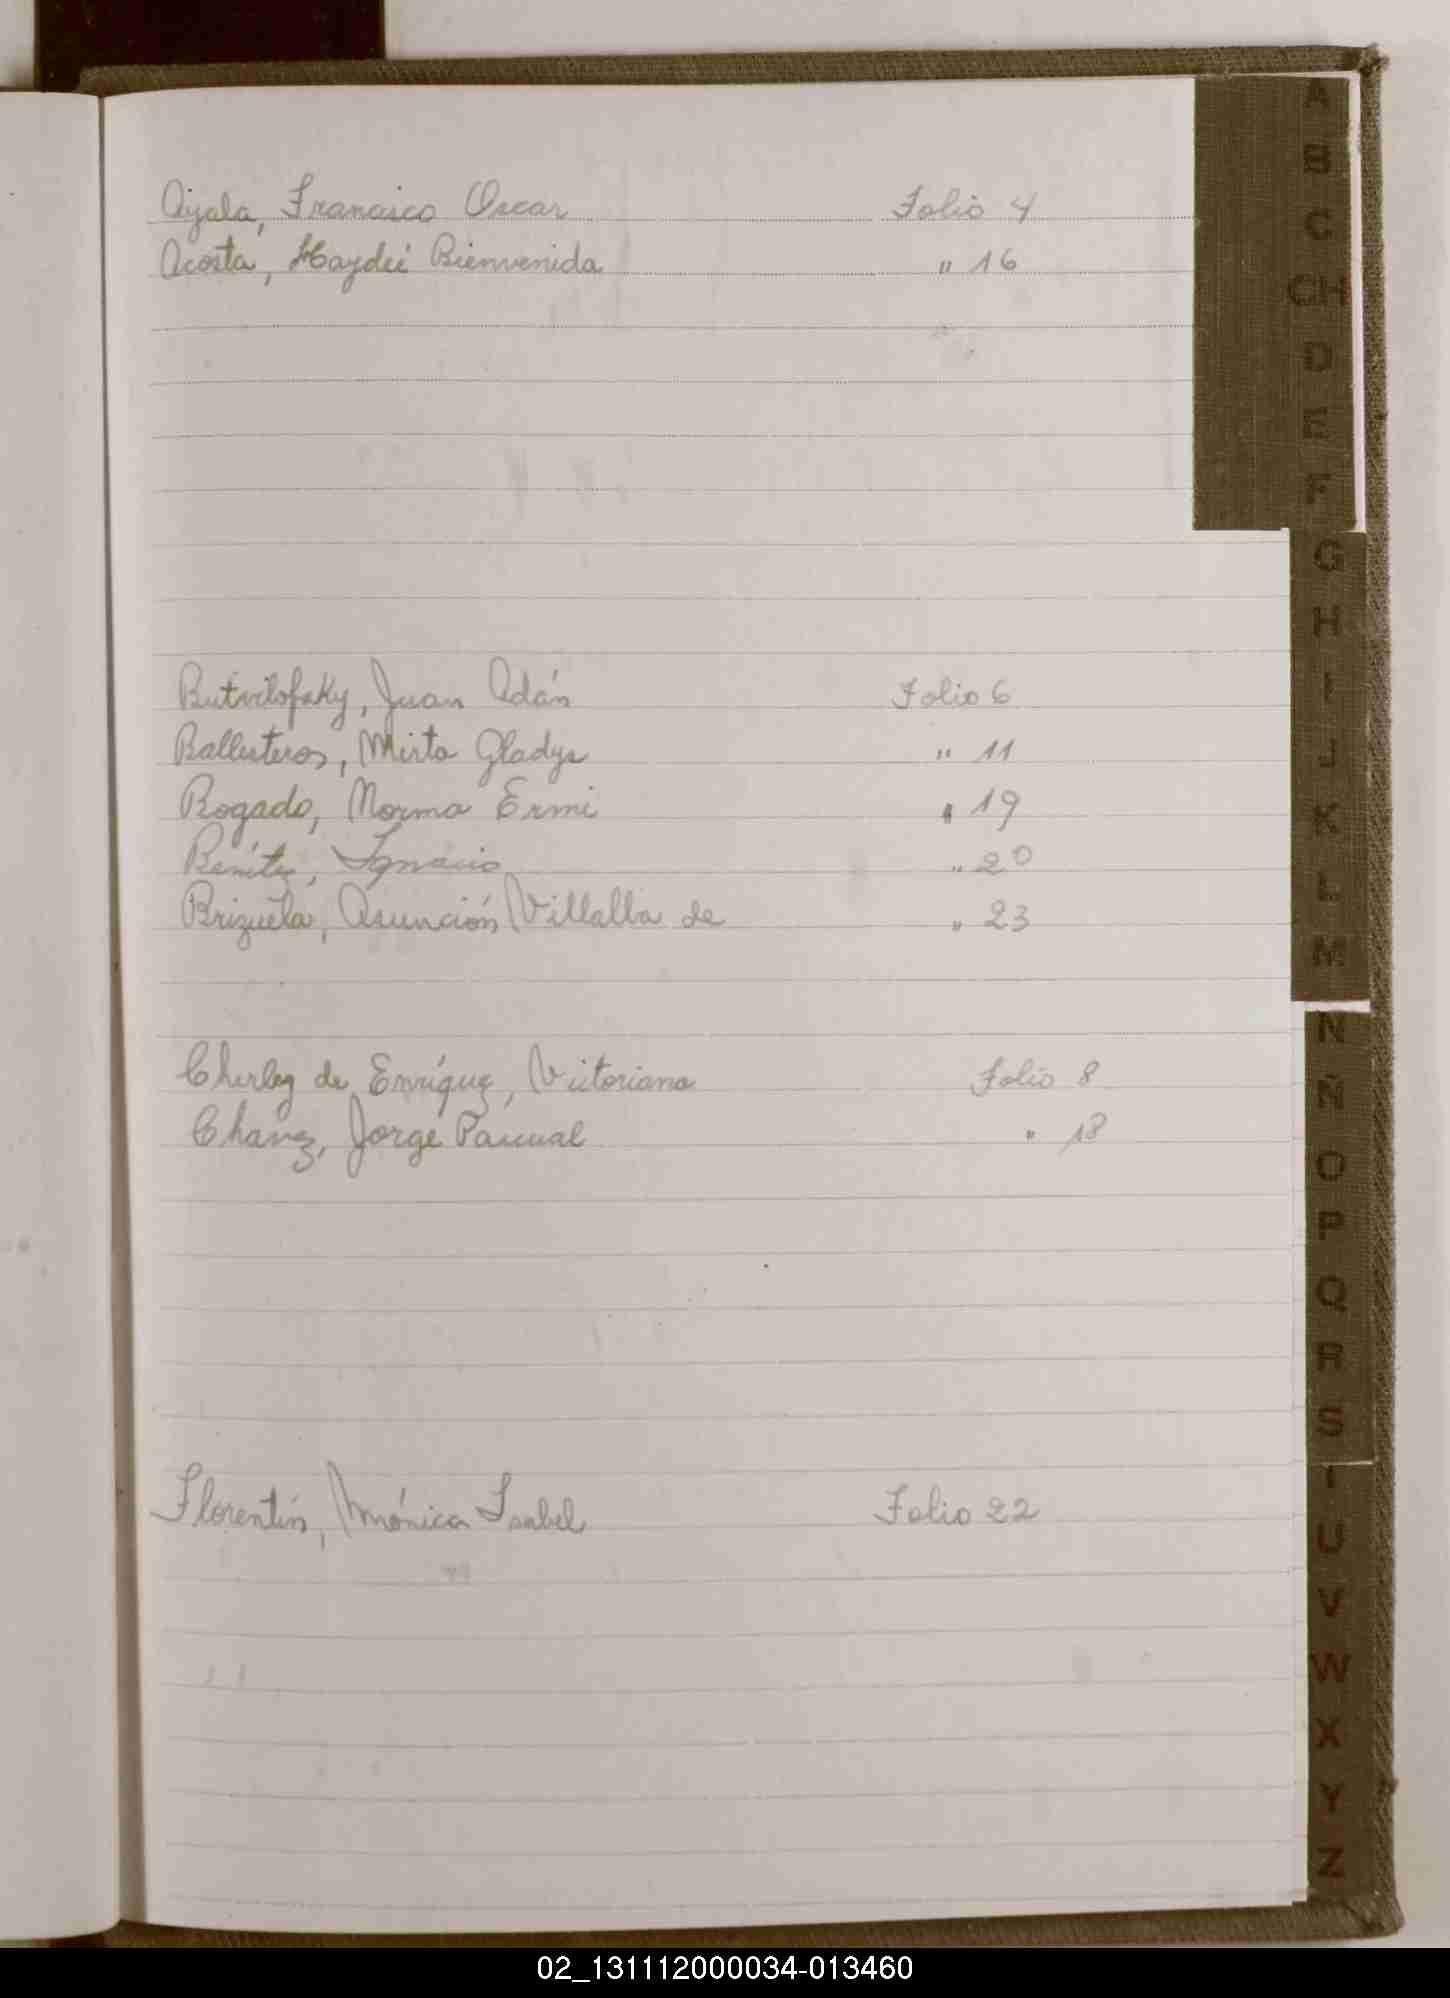 Ayala, Francisco Oscar Folio 4
Acosta, Haydée Bienvenida " 16
Butvilofsky, Juan Adán Folio 6
Ballesteros, Mirta Gladys " 11
Bogado, Norma Ermi " 19
Benítez, Ignacio " 20
Brizuela, Asunción Villalba de " 23
de Enríquez, Victoriana Folio 8
Chavez, Jorge Pascual " 18
Florentín, Mónica Isabel Folio 22
A
B
C
CH
D
E
F
G
H
I
J
K
L
M
N
Ñ
O
P
Q
R
S
T
U
V
W
X
Y
Z
02_131112000034-013460